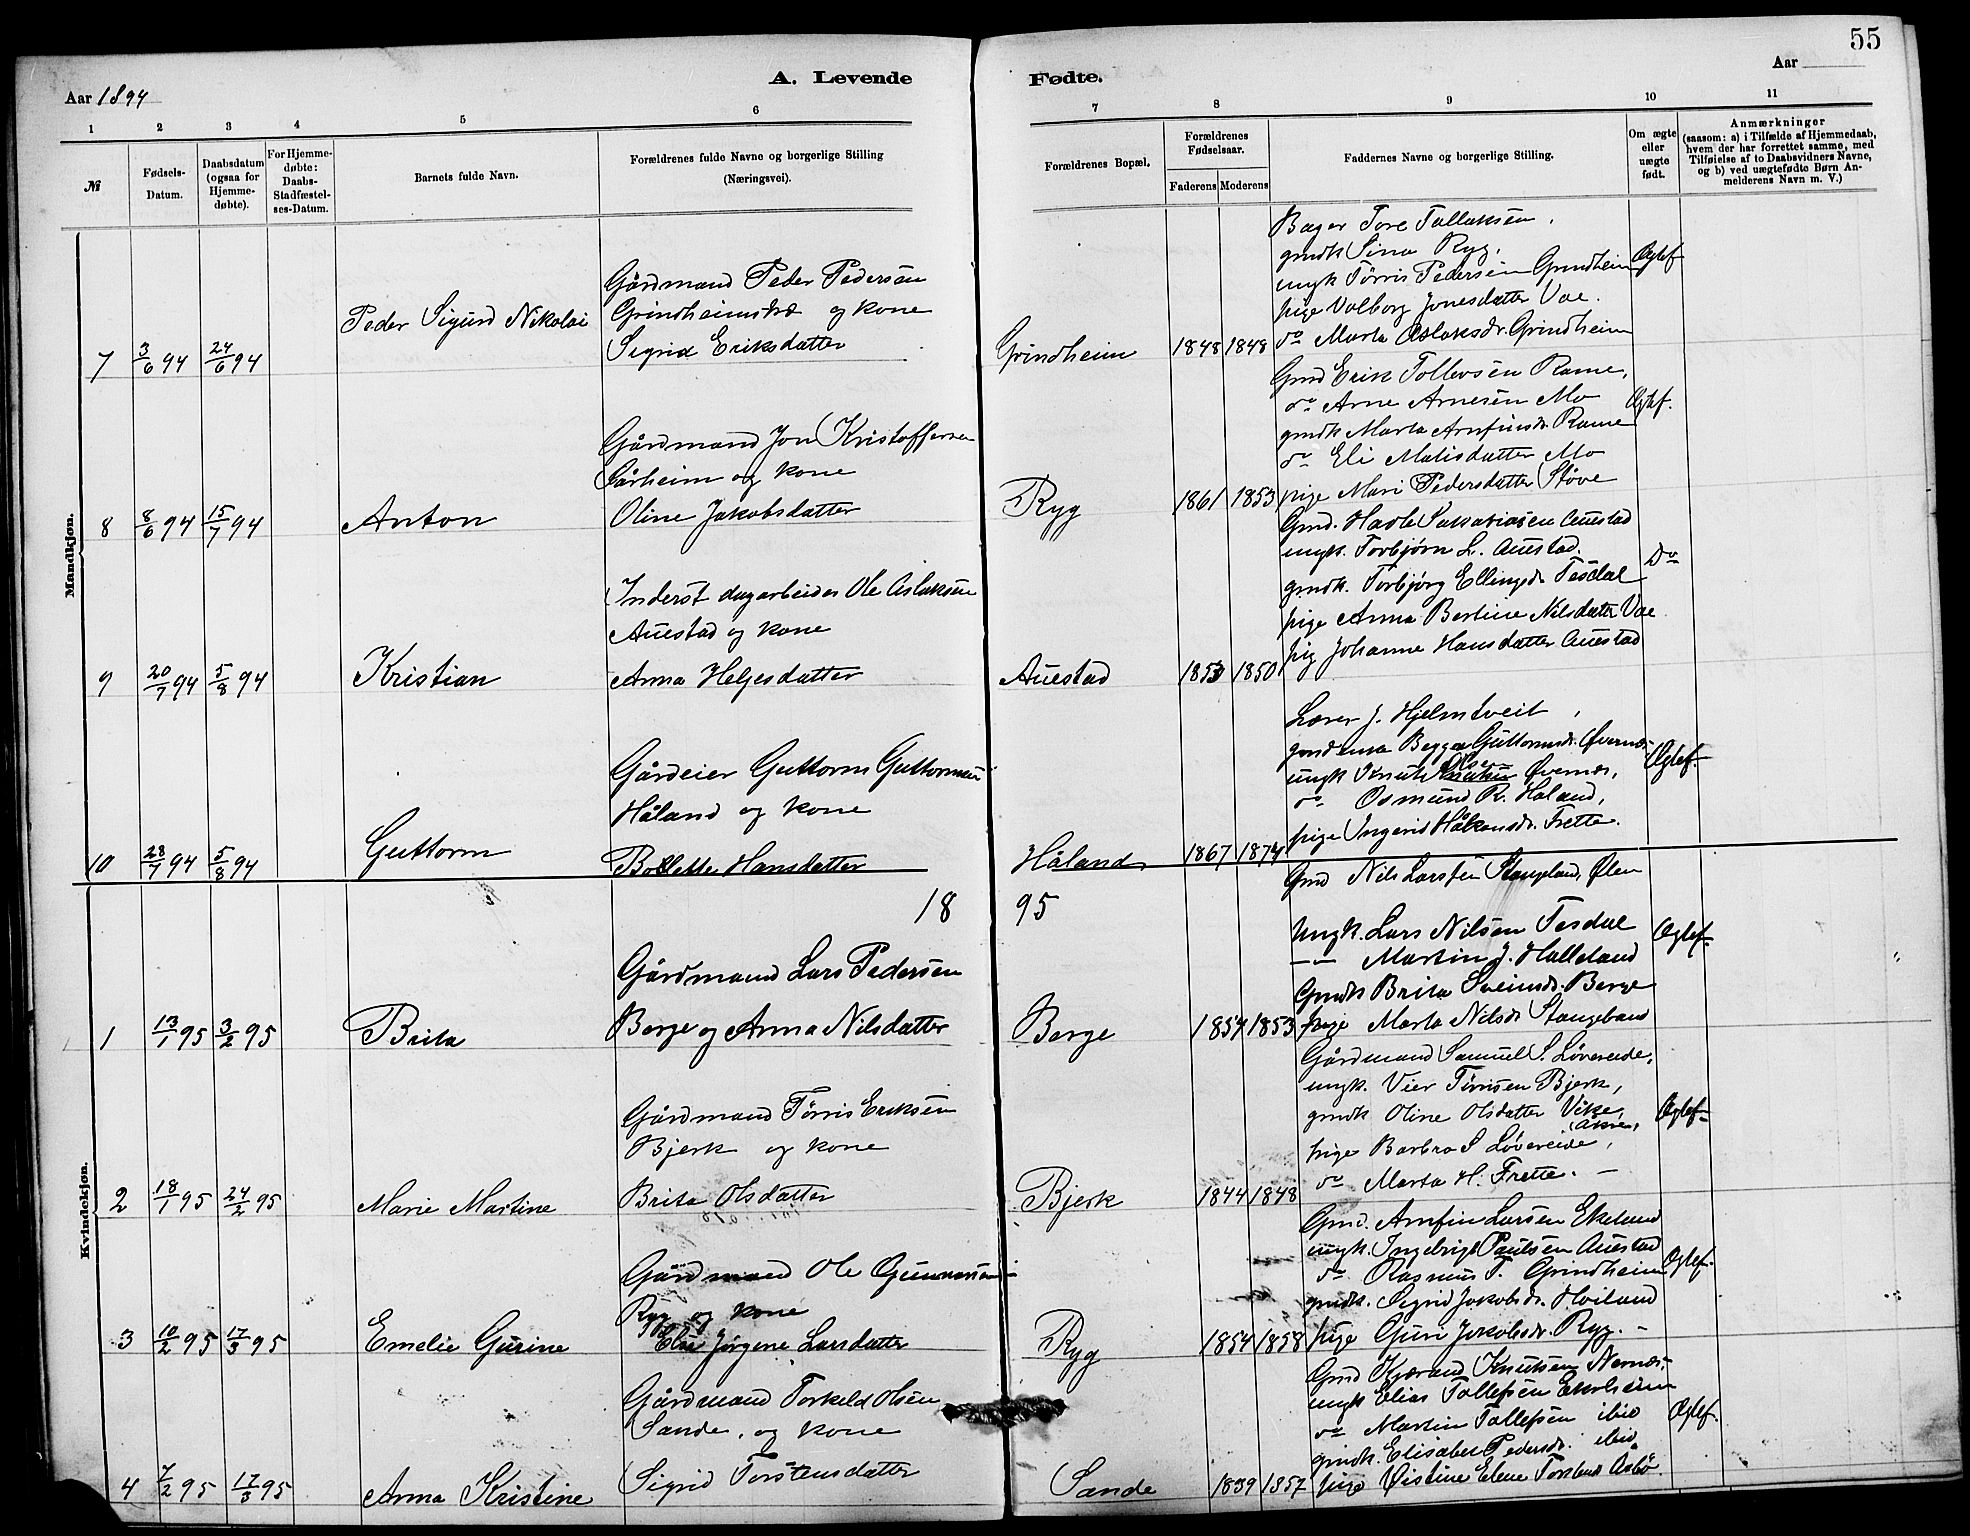 55
A. Levende Fødte.
Aar 1894
Aar
1 2 3 4 5 6 7 8 9 10 11
№
Fødsels-
Datum.
Daabsdatum
(ogsaa for
Hjemme-
døbte).
For Hjemme-
døbte:
Daabs-
Stadfæstel-
ses-Datum.
Barnets fulde Navn.
Forældrenes fulde Navne og borgerlige Stilling
(Næringsvei).
Forældrenes Bopæl.
Forældrenes
Fødselsaar.
Faderens Moderens
Faddernes Navne og borgerlige Stilling.
Om ægte
eller
uægte
født.
Anmærkninger
(saasom: a) i Tilfælde af Hjemmedaab,
hvem der har forrettet samme, med
Tilføielse af to Daabsvidners Navne,
og b) ved uægtefødte Børn An-
melderens Navn m. V.)
Mandkjøn.
7 3/6 94 24/6 94
Peder Sigurd Nikolai
Gårdmand Peder Pedersen
Grindheimstræ og kone
Sigrid Eriksdatter
Grindheim
1848 1848
Bager Tore Tallaksen
gmdk Sina Ryg.
ungk Tørris Pedersen Grindheim
pige Valborg Jonesdatter Vae.
do Marta Aslaksdr. Grindheim
Ægtef
8 8/6 94 15/7 94
Anton
Gårdmand Jon Kristoffersen
Sårheim og kone
Oline Jakobsdatter
Ryg
1861 1853
Gmd Erik Tollevsen Rame,
do Arne Arnesen Mo
gmdk Marta Arnfinsdr. Rame
do Eli Matisdatter Mo
pige Mari Pedersdatter Støve
Ægtef.
9 20/7 94 5/8 94
Kristian
Inderst dagarbeider Ole Aslaksen
Auestad og kone
Anna Helgesdatter
Auestad
1853 1850
Gmd. Havle Sakariasen Auestad
ungk. Torbjørn L. Auestad.
gmdk. Torbjørg Ellingsdr. Tesdal
pige Anna Bertine Nilsdatter Vae
pig Johanne Hansdatter Auestad
Do
10 28/7 94 5/8 94
Guttorm
Gårdeier Guttorm Guttormsen
Håland og kone
Bollette Hansdatter
Håland
1867 1874
Lærer J. Hjelmtveit,
Guttormsdr. Øvernæs
ungk Knut Olsen Øvernæs,
do Osmund R. Håland,
pige Ingerid Håkonsdr. Frette.
Ægtef.
18 95
Kvindekjøn.
1 13/1 95 3/2 95
Brita
Gårdmand Lars Pedersen
Berge og Anna Nilsdatter
Berge
1857 1853
Gmd Nils Larsen Stangeland, Ølen
Ungk. Lars Nilsen Tesdal
— — Martin J. Halleland
Gmdk Brita Sveinsdr. Berge
pige Marta Nilsdr Stangeland
Ægtef
2 18/1 95 24/2 95
Marie Martine
Gårdmand Tørris Eriksen
Bjerk og kone
Brita Olsdatter
Bjerk
1844 1848
Gårdmand Samuel S. Løvereide,
ungk. Vier Tørrisen Bjerk,
gmdk Oline Olsdatter Vike, Åkre,
pige Barbra S Løvereide,
do Marta H. Frette. —
Ægtef
3 10/2 95 17/3 95
Emelie Gurine
Gårdmand Ole Gunnarsen
Ryg og kone
Else Jørgene Larsdatter
Ryg
1854 1858
Gmd. Arnfin Larsen Ekeland
ungk. Ingebrigt Paulsen Auestad
do Rasmus T. Grindheim
gmdk. Sigrid Jakobsdr. Hviland
pige Guri Jakobsdr. Ryg. —
Ægtef.
4 7/2 95 17/3 95
Anna Kristine
Gårdmand Torkeld Olsen
Sande, og kone
Sigrid Torstensdatter
Sande
1859 1857
Gmd Kjærand Knutsen Nernæs,
ungk Elias Tollefsen
do Martin Tollefsen ibid
gmdk. Elisabet Pedersdr. ibid
pige Øistine Elene
Ægtef.